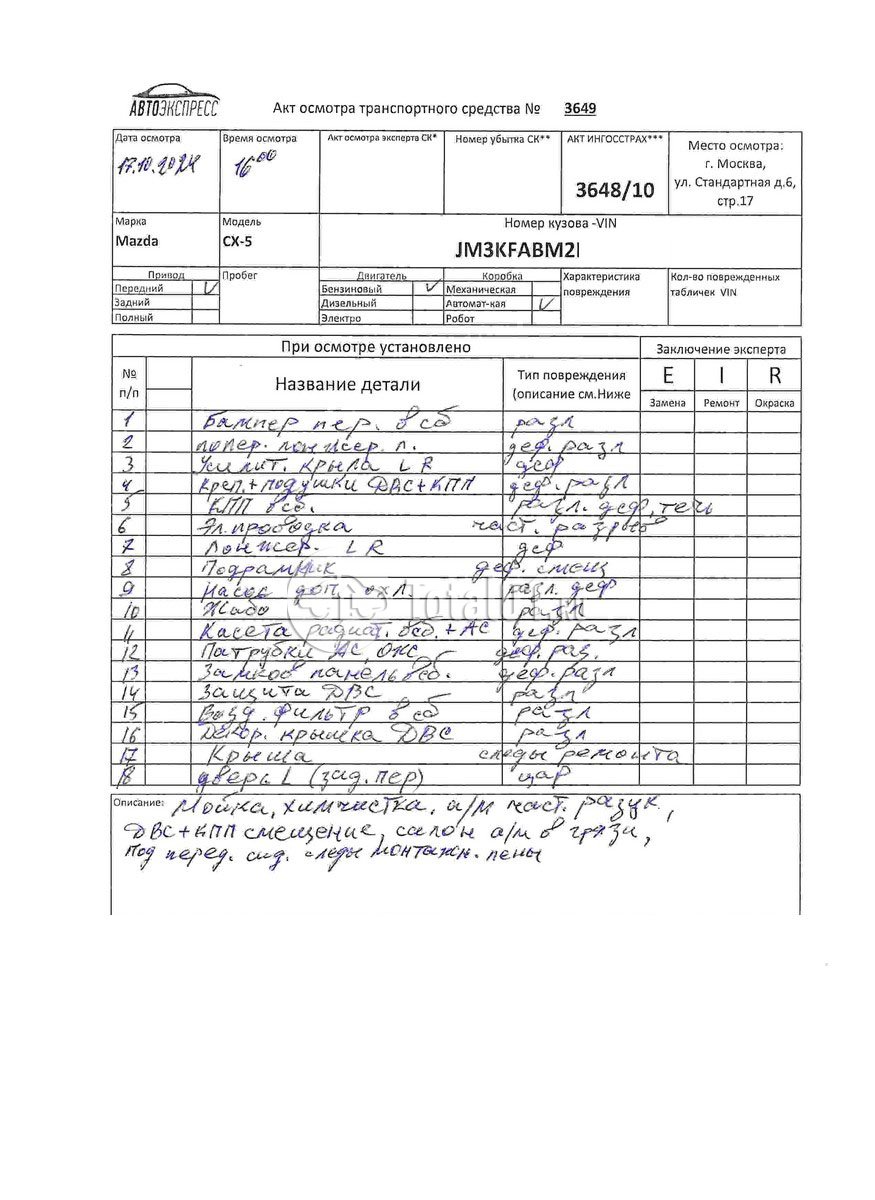 АВТОЭКСПРЕСС
Акт осмотра транспортного средства № 3649
Дата осмотра Время осмотра Акт осмотра эксперта СК* Номер убытка СК** АКТ ИНГОССТРАХ*** Место осмотра:
17.10.2024 16 00 3648/10 г. Москва,
ул. Стандартная д.6,
стр.17
Марка Модель Номер кузова -VIN
Mazda CX-5 JM3KFABM2
Привод Пробег Двигатель Коробка Характеристика повреждения Кол-во поврежденных табличек VIN
Передний V Бензиновый V Механическая
Задний Дизельный Автомат-кая V
Полный Электро Робот
При осмотре установлено Заключение эксперта
№ п/п Название детали Тип повреждения (описание см.Ниже E I R
Замена Ремонт Окраска
1 Бампер пер. в сб разл
2 попер. лонжер. л. деф. разл
3 Усилит. крыла L R деф
4 Креп.+подушки ДВС+КПП деф. разл
5 КПП в сб. разл. деф, течь
6 Эл. проводка част. разрыв
7 Лонжер. L R деф
8 Подрамник деф. смещ
9 Насос доп. охл. разл. деф
10 Жабо разл
11 Касета радиат. в сб. + АС деф. разл
12 Патрубки АС, ОЖС деф. раз.
13 Замков. панель в сб. деф. разл
14 Защита ДВС разл
15 Возд. фильтр в сб разл
16 Декор. крышка ДВС разл
17 Крыша следы ремонта
18 дверь L (зад. пер) цар
Описание: Мойка, химчистка, а/м част. разук,
ДВС+КПП смещение, салон а/м в грязи,
под перед. сид. следы монтажн. пены